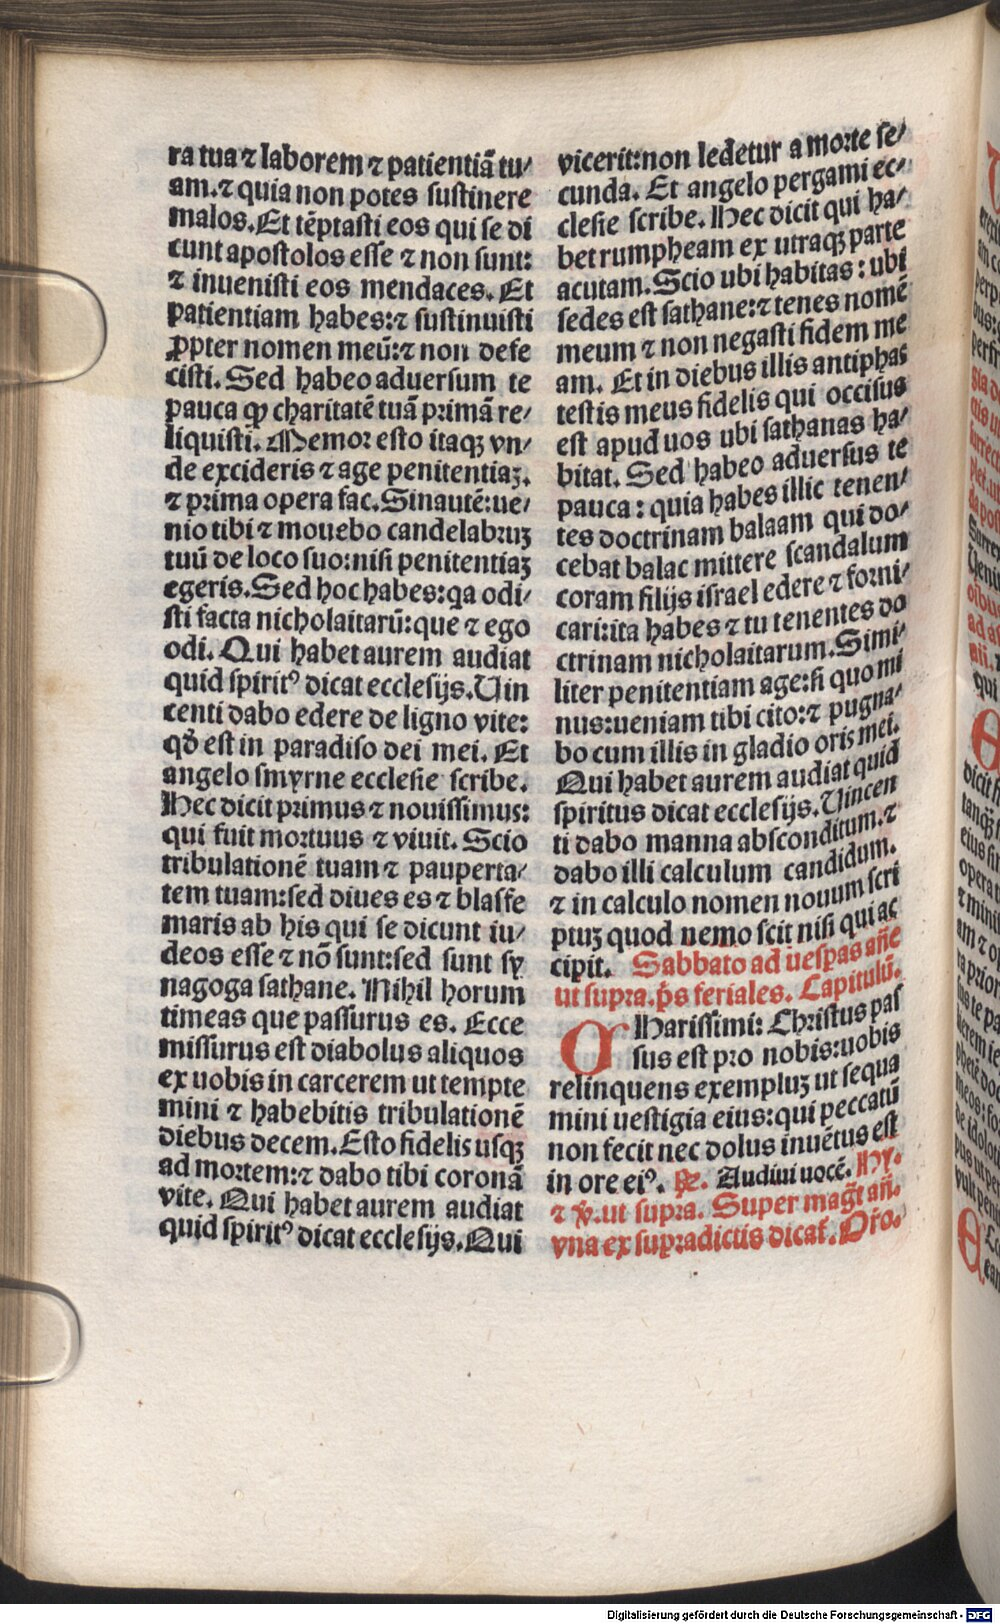 ra tua ⁊ laborem ⁊ patientiā tu/
am.⁊ quia non potes sustinere
malos. Et tēptasti eos qui se di
cunt apostolos esse ⁊ non sunt:
⁊ inuenisti eos mendaces. Et
patientiam habes:⁊ sustinuisti
ꝓpter nomen meū:⁊ non defe
cisti. Sed habeo aduersum te
pauca ꝙ charitatē tuā primā re/
liquisti. Memor esto itaqꝫ vn/
de excideris ⁊ age penitentiaꝫ.
⁊ prima opera fac. Sinautē:ue/
nio tibi ⁊ mouebo candelabruꝫ
tuū de loco suo:nisi penitentiaꝫ
egeris. Sed hoc habes:qa odi/
sti facta nicholaitarū:que ⁊ ego
odi. Qui habet aurem audiat
quid spiritꝰ dicat ecclesijs. Uin
centi dabo edere de ligno vite:
qđ est in paradiso dei mei. Et
angelo smyrne ecclesie scribe.
Hec dicit primus ⁊ nouissimus:
qui fuit mortuus ⁊ viuit. Scio
tribulationē tuam ⁊ pauperta/
tem tuam:sed diues es ⁊ blasfe
maris ab his qui se dicunt iu/
deos esse ⁊ nō sunt:sed sunt sy
nagoga sathane. Nihil horum
timeas que passurus es. Ecce
missurus est diabolus aliquos
ex uobis in carcerem ut tempte
mini ⁊ habebitis tribulationē
diebus decem. Esto fidelis usqꝫ
ad mortem:⁊ dabo tibi coronā
vite. Qui habet aurem audiat
quid spiritꝰ dicat ecclesijs. Qui
vicerit:non ledetur a morte se/
cunda. Et angelo pergami ec/
clesie scribe. Hec dicit qui ha/
bet rumpheam ex utraqꝫ parte
acutam. Scio ubi habitas: ubi
sedes est sathane:⁊ tenes nomē
meum ⁊ non negasti fidem me
am. Et in diebus illis antiphas
testis meus fidelis qui occisus
est apud uos ubi sathanas ha/
bitat. Sed habeo aduersus te
pauca: quia habes illic tenen/
tes doctrinam balaam qui do/
cebat balac mittere scandalum
coram filijs israel edere ⁊ forni/
cari:ita habes ⁊ tu tenentes do
ctrinam nicholaitarum. Simi/
liter penitentiam age:si quo mi
nus:ueniam tibi cito:⁊ pugna/
bo cum illis in gladio oris mei.
Qui habet aurem audiat quid
spiritus dicat ecclesijs. Uincen
ti dabo manna absconditum.⁊
dabo illi calculum candidum.
⁊ in calculo nomen nouum scri
ptuꝫ quod nemo scit nisi qui ac
cipit. Sabbato ad uespas añe
ut supra.p̄s feriales. Capitulū.
CHarissimi: Christus pas
sus est pro nobis:uobis
relinquens exempluꝫ ut sequa
mini uestigia eius:qui peccatū
non fecit nec dolus inuētus est
in ore eiꝰ. ℟. Audiui uocē. Hy.
⁊ ℣. ut supra. Super magt̄ añ.
vna ex supradictis dicat̄. Oro.
Digitalisierung gefördert durch die Deutsche Forschungsgemeinschaft - DFG